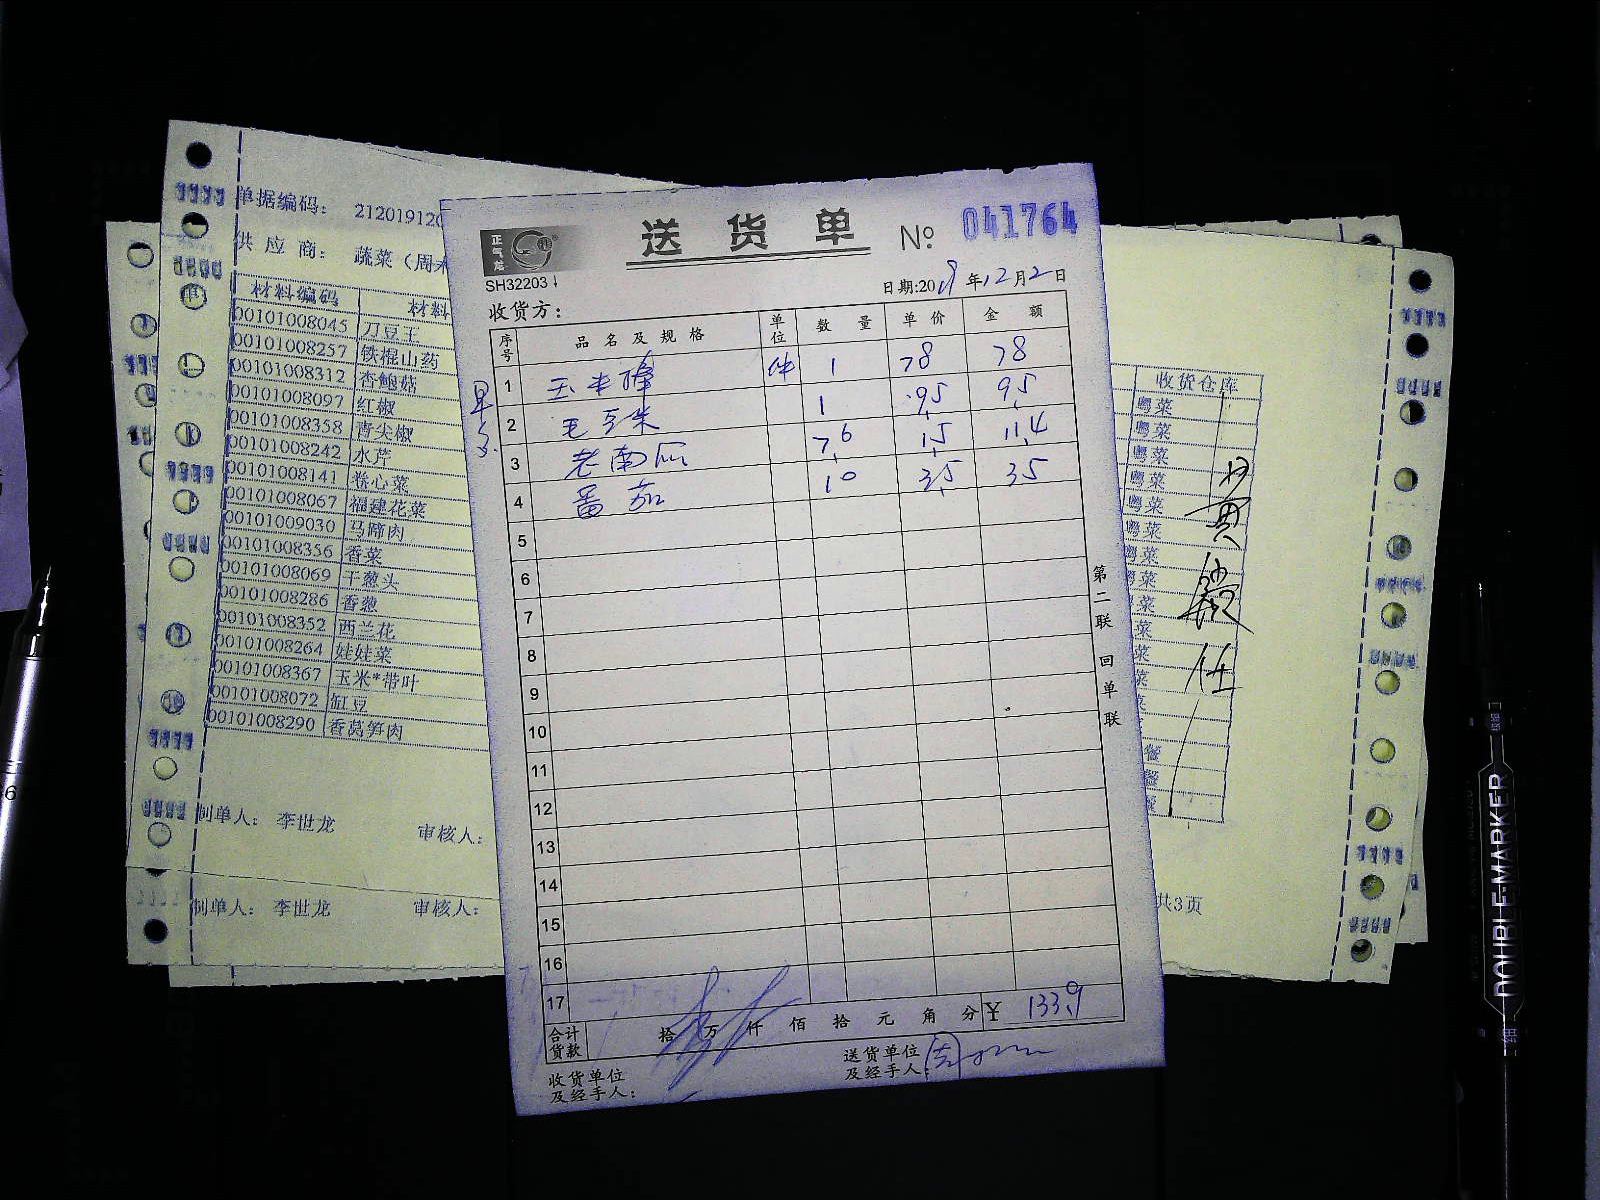 送货单 № 041764
正气龙
SH32203
日期:2019年12月2日
收货方：
序号 品名及规格 单位 数量 单价 金额
1 玉米棒 件 1 78 78
2 毛豆米 1 9.5 9.5
3 老南瓜 7.6 1.5 11.4
4 番茄 10 3.5 35
5
6
7
8
9
10
11
12
13
14
15
16
17
合计货款 拾 万 仟 佰 拾 元 角 分 ¥ 133.9
收货单位及经手人：
送货单位及经手人：
第二联 回单联
单据编码： 212019120
供应商： 蔬菜（周末
材料编码 材料
00101008045 刀豆王
00101008257 铁棍山药
00101008312 杏鲍菇
00101008097 红椒
00101008358 青尖椒
00101008242 水芹
00101008141 卷心菜
00101008067 福建花菜
00101009030 马蹄肉
00101008356 香菜
00101008069 干葱头
00101008286 香葱
00101008352 西兰花
00101008264 娃娃菜
00101008367 玉米*带叶
00101008072 缸豆
00101008290 香莴笋肉
制单人： 李世龙 审核人：
制单人： 李世龙 审核人：
收货仓库
粤菜
粤菜
粤菜
粤菜
粤菜
粤菜
粤菜
菜
菜
菜
菜
菜
共3页
DOUBLE-MARKER